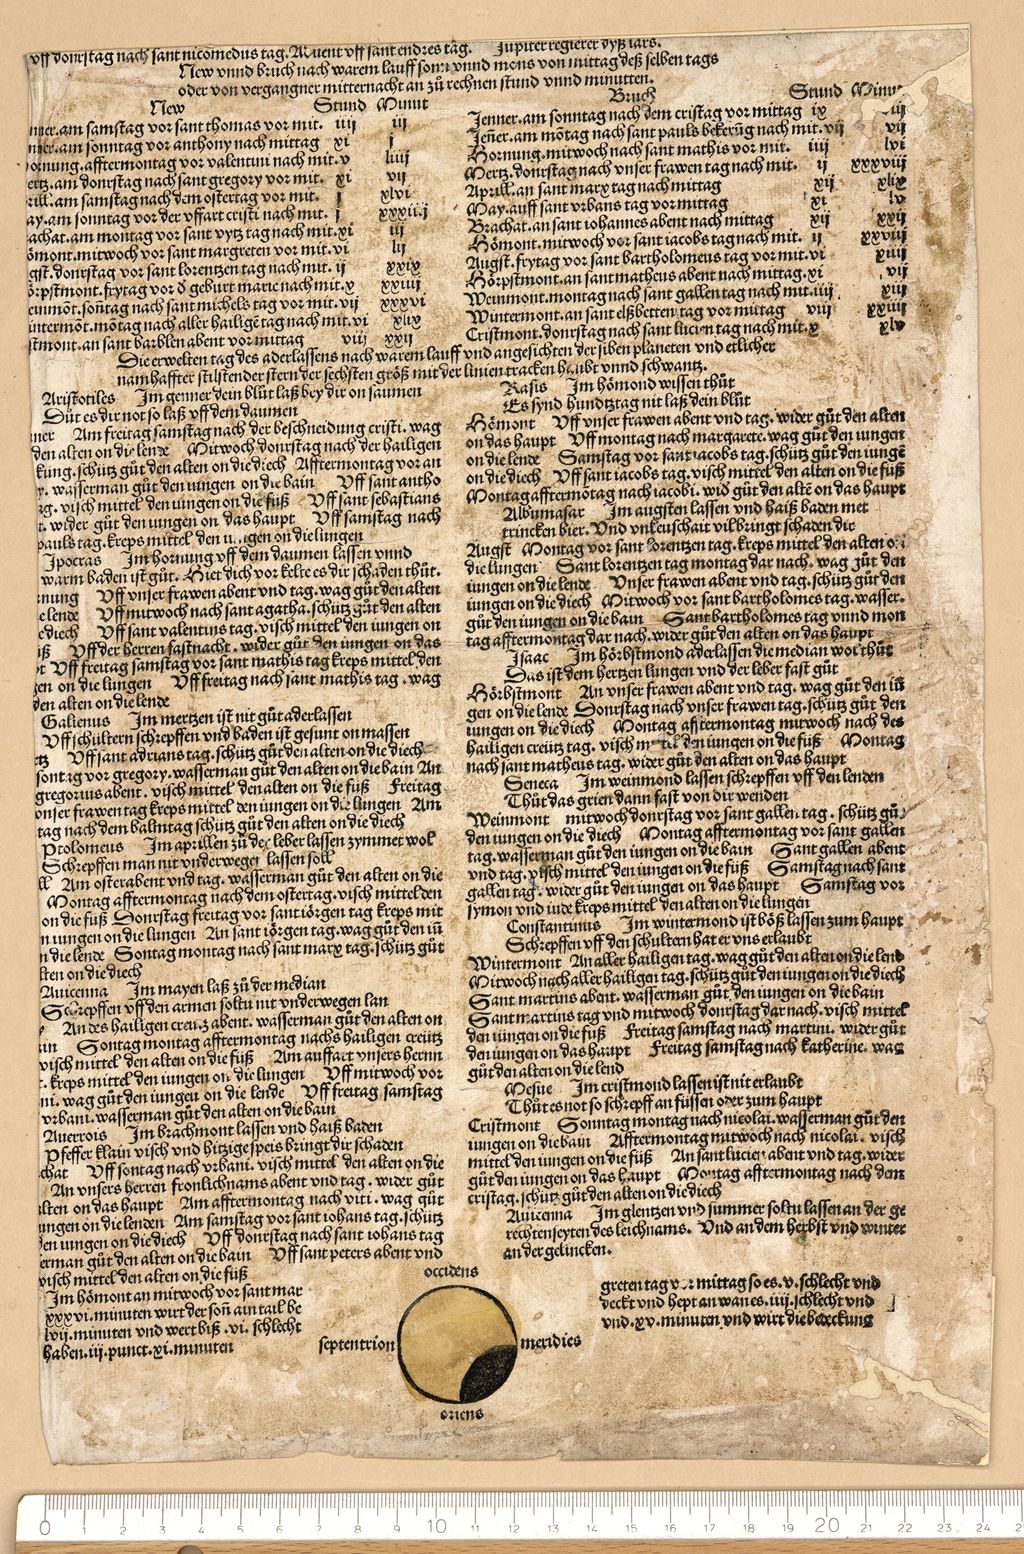 vff donrstag nach sant nicomedus tag. Aduent vff sant endres tag. Jupiter regierer dyß iars.
New vnnd bruch nach warem lauff sonn vnnd mons von mittag deß selben tags
oder von vergangner mitternacht an zů rechnen stund vnnd minutten.
New Stund Minut
nner. am samstag vor sant thomas vor mit. iij iij
nner. am sonntag vor anthony nach mittag xi j
ornung. afftermontag vor valentini nach mit. v liiij
ertz. am donrstag nach sant gregory vor mit. xi vij
rill. am samstag nach dem ostertag vor mit. j xlvi
ay. am sonntag vor der vffart cristi nach mit. j
achat. am montag vor sant vytz tag nach mit. xi iij
ömont. mitwoch vor sant margreten vor mit. vi lij
gst. donrstag vor sant lorentzen tag nach mit. ij xxix
örpstmont. frytag vor d̕ geburt marie nach mit. x xxiiij
einmōt. soñtag nach sant michels tag vor mit. vij xxxvi
intermōt. mōtag nach aller hailigē tag nach mit. vi xlix
stmont. an sant barblen abent vor mittag viij xxij
Bruch
Stund
Jenner. am sonntag nach dem cristag vor mittag ix
Jeñer. am mōtag nach sant pauls bekerūg nach mit. vij vij
Hornung. mitwoch nach sant mathis vor mit. iiij lvi
Mertz. donrstag nach vnser frawen tag nach mit. ij xxxviij
Aprill. an sant marx tag nach mittag xij xlix
May. auff sant vrbans tag vor mittag xi lv
Brachat. an sant iohannes abent nach mittag xij xxij
Hömont. mitwoch vor sant iacobs tag nach mit. ij xxviij
Augst. frytag vor sant bartholomeus tag vor mit. vi xiiij
Hörpstmont. an sant matheus abent nach mittag. xi vij
Weinmont. montag nach sant gallen tag nach mit. iiij xiij
Wintermont. an sant elßbetten tag vor mittag viij xxiiij
Cristmont. donrstag nach sant lucien tag nach mit. x
Die erwelten tag des aderlassens nach warem lauff vnd angesichten der siben planeten vnd etlicher
namhaffter stilstender stern der sechsten größ mit der linien tracken haubt vnnd schwantz.
Aristotiles Im genner dein blůt laß bey dir on saumen
Důt es dir not so laß vff dem daumen
nner Am freitag samstag nach der beschneidung cristi. wag
den alten on die lende Mitwoch donrstag nach der hailigen
küng. schütz gůt den alten on die diech Afftermontag vor an
y. wasserman gůt den iungen on die bain Vff sant antho
rg. visch mittel den iungen on die fůß Vff sant sebastians
t. wider gůt den iungen on das haupt Vff samstag nach
pauls tag. kreps mittel den iungen on die lungen
Jpocras Im hornung vff dem daumen lassen vnnd
warm baden ist gůt. Hiet dich vor kelte es dir schaden thůt.
nung Vff vnser frawen abent vnd tag. wag gůt den alten
e lende Vff mitwoch nach sant agatha. schütz gůt den alten
e diech Vff sant valentins tag. visch mittel den iungen on
iß Vff der herren fastnacht. wider gůt den iungen on das
t Vff freitag samstag vor sant mathis tag kreps mittel den
gen on die lungen Vff freitag nach sant mathis tag. wag
den alten on die lende
Galienus Im mertzen ist nit gůt aderlassen
Vff schultern schrepffen vnd baden ist gesunt on massen
tz Vff sant adrians tag. schütz gůt den alten on die diech
sontag vor gregory. wasserman gůt den alten on die bain An
gregorius abent. visch mittel den alten on die fůß Freitag
vnser frawen tag kreps mittel den iungen on die lungen Am
tag nach dem balmtag schütz gůt den alten on die diech
Ptolomeus Im aprillen zů der leber lassen zymmet wol
Schrepffen man nit vnderwegen lassen soll
ll Am osterabent vnd tag. wasserman gůt den alten on die
Montag afftermontag nach dem ostertag. visch mittel den
on die fůß Donrstag freitag vor sant iörgen tag kreps mit
n iungen on die lungen An sant iörgen tag. wag gůt den iū
n die lende Sontag montag nach sant marx tag. schütz gůt
lten on die diech
Auicenna Im mayen laß zů der median
Schrepffen vff den armen soltu nit vnderwegen lan
y An des hailigen creutz abent. wasserman gůt den alten on
ain Sontag montag afftermontag nachs hailigen creütz
visch mittel den alten on die fůß Am auffart vnsers herrn
. kreps mittel den iungen on die lungen Vff mitwoch vor
ni. wag gůt den iungen on die lende Vff freitag samstag
vrbani. wasserman gůt den alten on die bain
Auerrois Im brachmont lassen vnd haiß baden
Pfeffer klain visch vnd hitzige speis bringt dir schaden
chat Vff sontag nach vrbani. visch mittel den alten on die
An vnsers herren fronlichnams abent vnd tag. wider gůt
alten on das haupt Am afftermontag nach viti. wag gůt
ungen on die lenden Am samstag vor sant iohans tag. schütz
en iungen on die diech Vff donrstag nach sant iohans tag
erman gůt den alten on die bain Vff sant peters abent vnd
visch mittel den alten on die fůß
Rasis Im hömond wissen thůt
Es synd hundtztag nit laß dein blůt
Hömont Vff vnser frawen abent vnd tag. wider gůt den alten
on das haupt Vff montag nach margarete. wag gůt den iungen
on die lende Samstag vor sant iacobs tag. schütz gůt den iungē
on die diech Vff sant iacobs tag. visch mittel den alten on die fůß
Montag afftermōtag nach iacobi. wid̕ gůt den altē on das haupt
Albumasar Im augsten lassen vnd haiß baden met
trincken bier. Vnd vnkeuschait vil bringt schaden dir
Augst Montag vor sant lorentzen tag. kreps mittel den alten on
die lungen Sant lorentzen tag montag dar nach. wag gůt den
iungen on die lende Vnser frawen abent vnd tag. schütz gůt den
iungen on die diech Mitwoch vor sant bartholomes tag. wasser.
gůt den iungen on die bain Sant bartholomes tag vnnd mon
tag afftermontag dar nach. wider gůt den alten on das haupt
Isaac Im hörbstmont aderlassen die median wol thůt
Das ist dem hertzen lungen vnd der leber fast gůt
Hörbstmont An vnser frawen abent vnd tag. wag gůt den iū
gen on die lende Donrstag nach vnser frawen tag. schütz gůt den
iungen on die diech Montag afftermontag mitwoch nach des
hailigen creütz tag. visch mittel den iungen on die fůß Montag
nach sant matheus tag. wider gůt den alten on das haupt
Seneca Im weinmond lassen schrepffen vff den lenden
Thůt das grien dann fast von dir wenden
Weinmont mitwoch donrstag vor sant gallen tag. schütz gůt
den iungen on die diech Montag afftermontag vor sant gallen
tag. wasserman gůt den iungen on die bain Sant gallen abent
vnd tag. visch mittel den iungen on die fůß Samstag nach sant
gallen tag. wider gůt den iungen on das haupt Samstag vor
symon vnd iude kreps mittel den alten on die lungen
Constantinus Im wintermond ist böß lassen zum haupt
Schrepffen vff den schultern hat er vns erlaubt
Wintermont An aller hailigen tag. wag gůt den alten on die lend
Mitwoch nach aller hailigen tag. schütz gůt den iungen on die diech
Sant martins abent. wasserman gůt den iungen on die bain
Sant martins tag vnd mitwoch donrstag dar nach. visch mittel
den iungen on die fůß Freitag samstag nach martini. wider gůt
den iungen on das haupt Freitag samstag nach katherine. wag
gůt den alten on die lend
Mesue Im cristmond lassen ist nit erlaubt
Thůt es not so schrepff an füssen oder zum haupt
Cristmont Sonntag montag nach nicolai. wasserman gůt den
iungen on die bain Afftermontag mitwoch nach nicolai. visch
mittel den iungen on die fůß An sant lucien abent vnd tag. wider
gůt den iungen on das haupt Montag afftermontag nach dem
cristag. schütz gůt den alten on die diech
Auicenna Im glentzen vnd summer soltu lassen an der ge
rechten seyten des leichnams. Vnd an dem herbst vnd winter
an der gelincken.
Im hömont an mitwoch vor sant mar
xxxvi. minuten wirt der soñ ain tail be
lvij. minuten vnd wert biß. vi. schlecht
haben. iij. punct. xi. minuten
occidens
septentrion
meridies
oriens
greten tag vor mittag so es. v. schlecht vnd
deckt vnd hept an wan es. iiij. schlecht vnd
vnd. xv. minuten vnd wirt die bedeckung
0 1 2 3 4 5 6 7 8 9 10 11 12 13 14 15 16 17 18 19 20 21 22 23 24